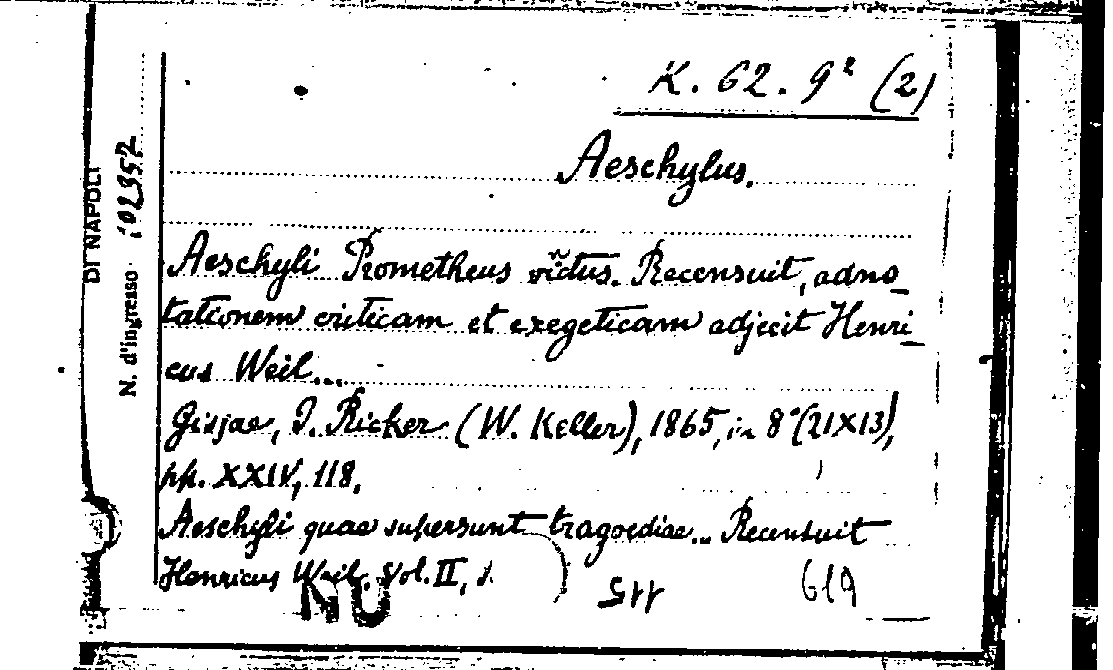 K. 62. 9² (2)
Aeschylus.
Aeschyli Prometheus vīctus. Recensuit, adno_
tationem criticam et exegeticam adjecit Henri_
cus Weil...
Gissae, J. Ricker (W. Keller), 1865, in 8° (21X13),
pp. XXIV, 118.
Aeschyli quae supersunt tragoediae... Recensuit
Henricus Weil. Vol. II, 1.
619
DI NAPOLI
N. d'ingresso 102357